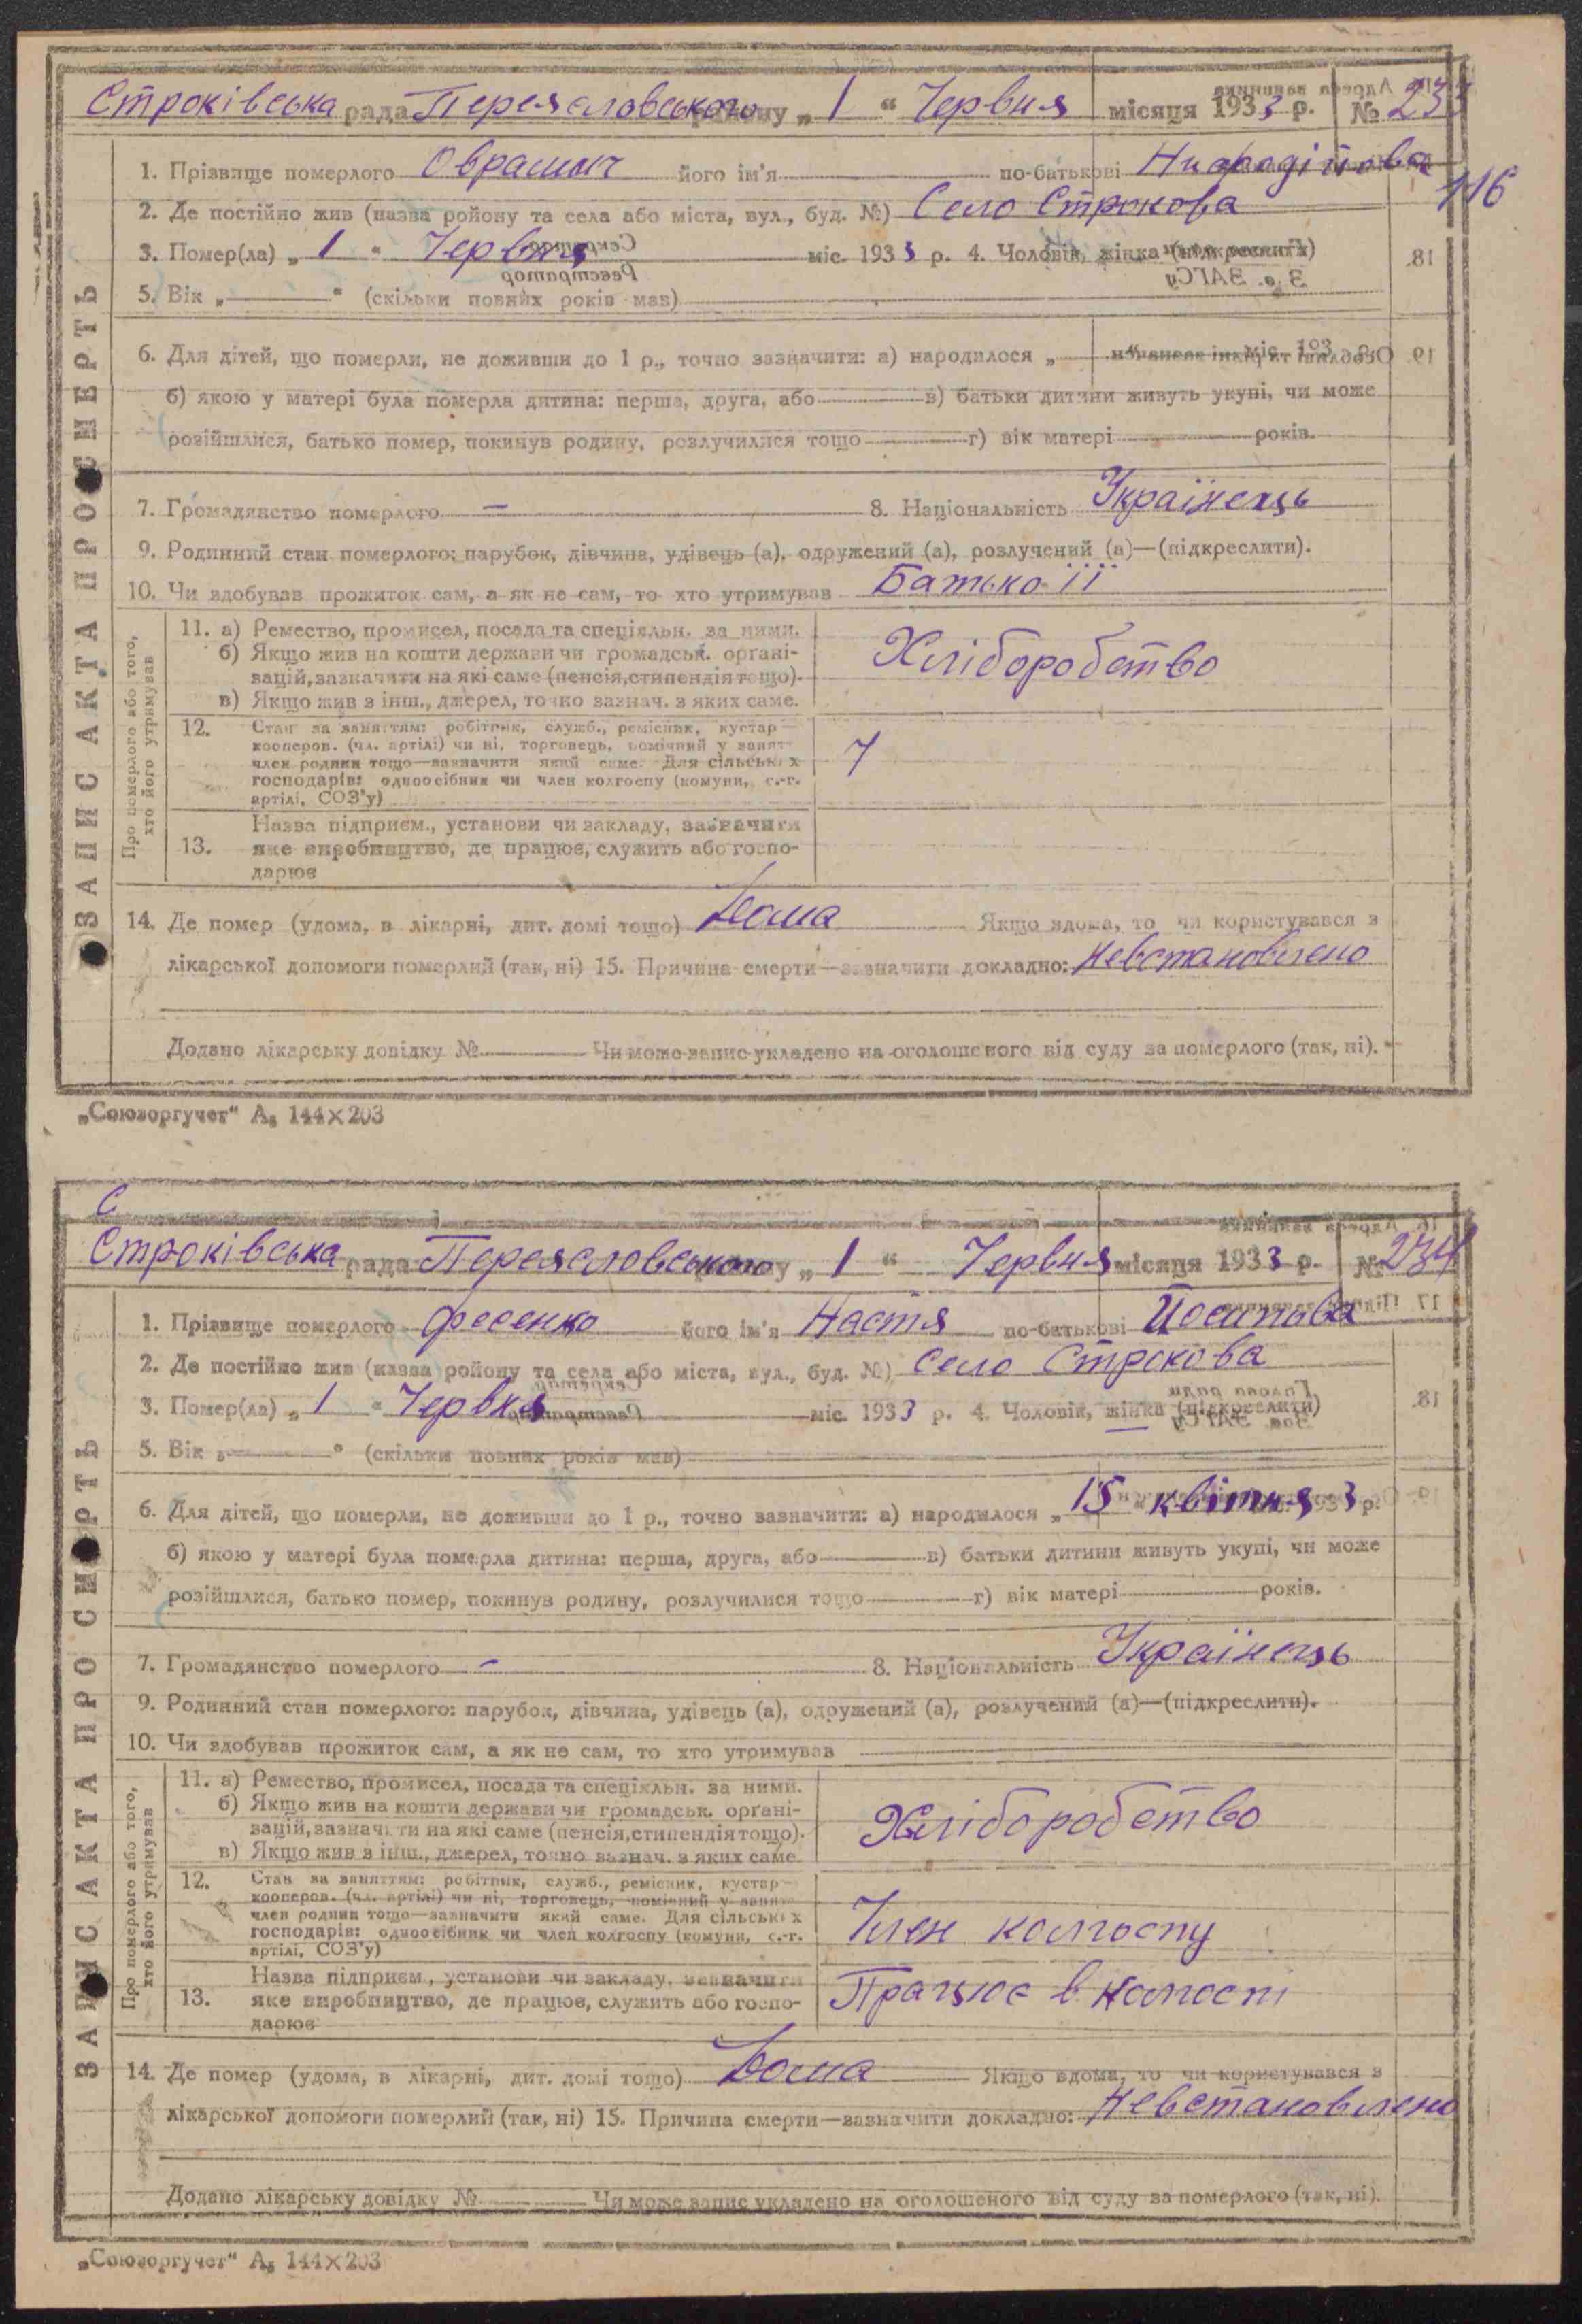 Строківська рада Переяславського району „ 1 “ Червня місяця 1933 р. № 233
116
ЗАПИС АКТА ПРО СМЕРТЬ
1. Прізвище померлого Оврашич його ім'я по-батькові
2. Де постійно жив (назва ройону та села або міста, вул., буд. №) Село Строкова
3. Помер(ла) „ 1 “ Червня міс. 1933 р. 4. Чоловік, жінка (підкреслити)
5. Вік „ “ (скільки повних років мав)
6. Для дітей, що померли, не доживши до 1 р., точно зазначити: а) народилося „ міс. 193 р.
б) якою у матері була померла дитина: перша, друга, або в) батьки дитини живуть укупі, чи може
розійшлися, батько помер, покинув родину, розлучилися тощо г) вік матері років.
7. Громадянство померлого – 8. Національність Українець
9. Родинний стан померлого: парубок, дівчина, удівець (а), одружений (а), розлучений (а)—(підкреслити).
10. Чи здобував прожиток сам, а як не сам, то хто утримував Батько її
Про померлого або того, хто його утримував
11. а) Ремество, промисел, посада та спеціяльн. за ними.
б) Якщо жив на кошти держави чи громадськ. органі-
зацій, зазначити на які саме (пенсія, стипендія тощо).
в) Якщо жив з інш., джерел, точно зазнач. з яких саме.
Хліборобство
12. Стан за заняттям: робітник, служб., ремісник, кустар
кооперов. (чл. артілі) чи ні, торговець, помічний у занят.
член родини тощо—зазначити який саме. Для сільських
господарів: одноосібник чи член колгоспу (комуни, с.-г.
артілі, СОЗ'у)
13. Назва підприєм., установи чи закладу, зазначити
яке виробництво, де працює, служить або госпо-
дарює
14. Де помер (удома, в лікарні, дит. домі тощо) Дома Якщо вдома, то чи користувався з
лікарської допомоги померлий (так, ні) 15. Причина смерти—зазначити докладно: Невстановлено
Додано лікарську довідку № Чи може запис укладено на оголошеного від суду за померлого (так, ні).
„Союзоргучет“ А₅ 144×203
С
Строківська рада Переяславського району „ 1 “ Червня місяця 1933 р. № 234
ЗАПИС АКТА ПРО СМЕРТЬ
1. Прізвище померлого Фесенко його ім'я Настя по-батькові Йосипова
2. Де постійно жив (назва ройону та села або міста, вул., буд. №) Село Строкова
3. Помер(ла) „ 1 “ Червня міс. 1933 р. 4. Чоловік, жінка (підкреслити)
5. Вік „ “ (скільки повних років мав)
6. Для дітей, що померли, не доживши до 1 р., точно зазначити: а) народилося „ 15 “ квітня 1933 р.
б) якою у матері була померла дитина: перша, друга, або в) батьки дитини живуть укупі, чи може
розійшлися, батько помер, покинув родину, розлучилися тощо г) вік матері років.
7. Громадянство померлого – 8. Національність Українець
9. Родинний стан померлого: парубок, дівчина, удівець (а), одружений (а), розлучений (а)—(підкреслити).
10. Чи здобував прожиток сам, а як не сам, то хто утримував
Про померлого або того, хто його утримував
11. а) Ремество, промисел, посада та спеціяльн. за ними.
б) Якщо жив на кошти держави чи громадськ. органі-
зацій, зазначити на які саме (пенсія, стипендія тощо).
в) Якщо жив з інш., джерел, точно зазнач. з яких саме
Хліборобство
12. Стан за заняттям: робітник, служб., ремісник, кустар
кооперов. (чл. артілі) чи ні, торговець, помічний у занят.
член родини тощо—зазначити який саме. Для сільських
господарів: одноосібник чи член колгоспу (комуни, с.-г.
артілі, СОЗ'у)
Член колгоспу
13. Назва підприєм., установи чи закладу, зазначити
яке виробництво, де працює, служить або госпо-
дарює
Працює в колгоспі
14. Де помер (удома, в лікарні, дит. домі тощо) Дома Якщо вдома, то чи користувався з
лікарської допомоги померлий (так, ні) 15. Причина смерти—зазначити докладно: Невстановлено
Додано лікарську довідку № Чи може запис укладено на оголошеного від суду за померлого (так, ні).
„Союзоргучет“ А₅ 144×203